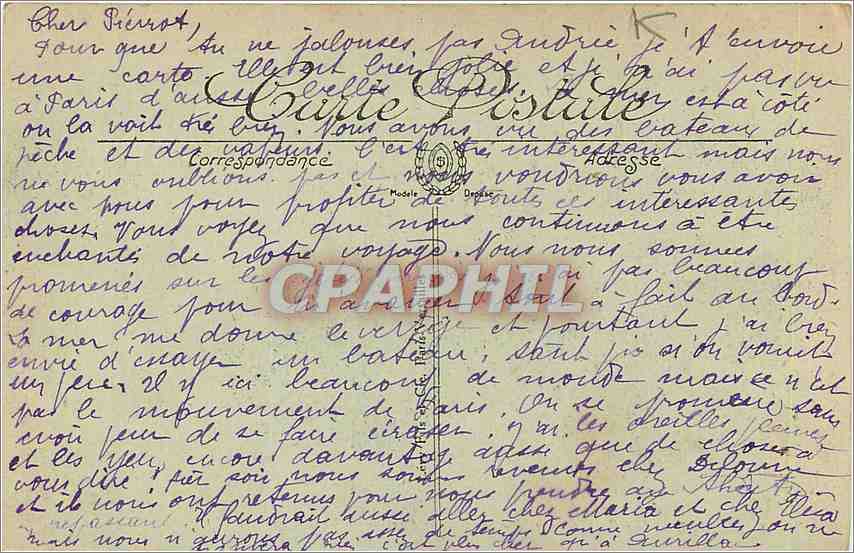 Cher Pierrot,
Pour que tu ne jalouses pas Andrée je t'envoie
une carte. Elle est bien jolie et je n'ai pas vu
à Paris d'aussi belles choses. La mer est à côté
Carte Postale
on la voit très bien. Nous avons vu des bateaux de
pêche et des vapeurs. C'est très intéressant mais nous
Correspondance
Adresse
ne vous oublions pas et nous voudrions vous avoir
Modèle Déposé
avec nous pour profiter de toutes ces intéressantes
choses. Vous voyez que nous continuons à être
enchantés de notre voyage. Nous nous sommes
promenés sur les je n'ai pas beaucoup
CPAPHIL
de courage pour m'avancer tout à fait au bord.
La mer me donne le vertige et pourtant j'ai bien
envie d'essayer un bateau, tant pis si on vomit
un peu. Il y ici beaucoup de monde mais ce n'est
pas le mouvement de Paris. On se promène sans
avoir peur de se faire écraser. J'ai les oreilles pleines
et les yeux encore davantage aussi que de choses à
vous dire. Hier soir nous sommes revenus chez
et ils nous ont retenus pour nous prendre au
repassant. Il faudrait aussi aller chez Maria et chez
mais nous n'aurons pas assez de temps. Comme on ne
c'est plus cher qu'à